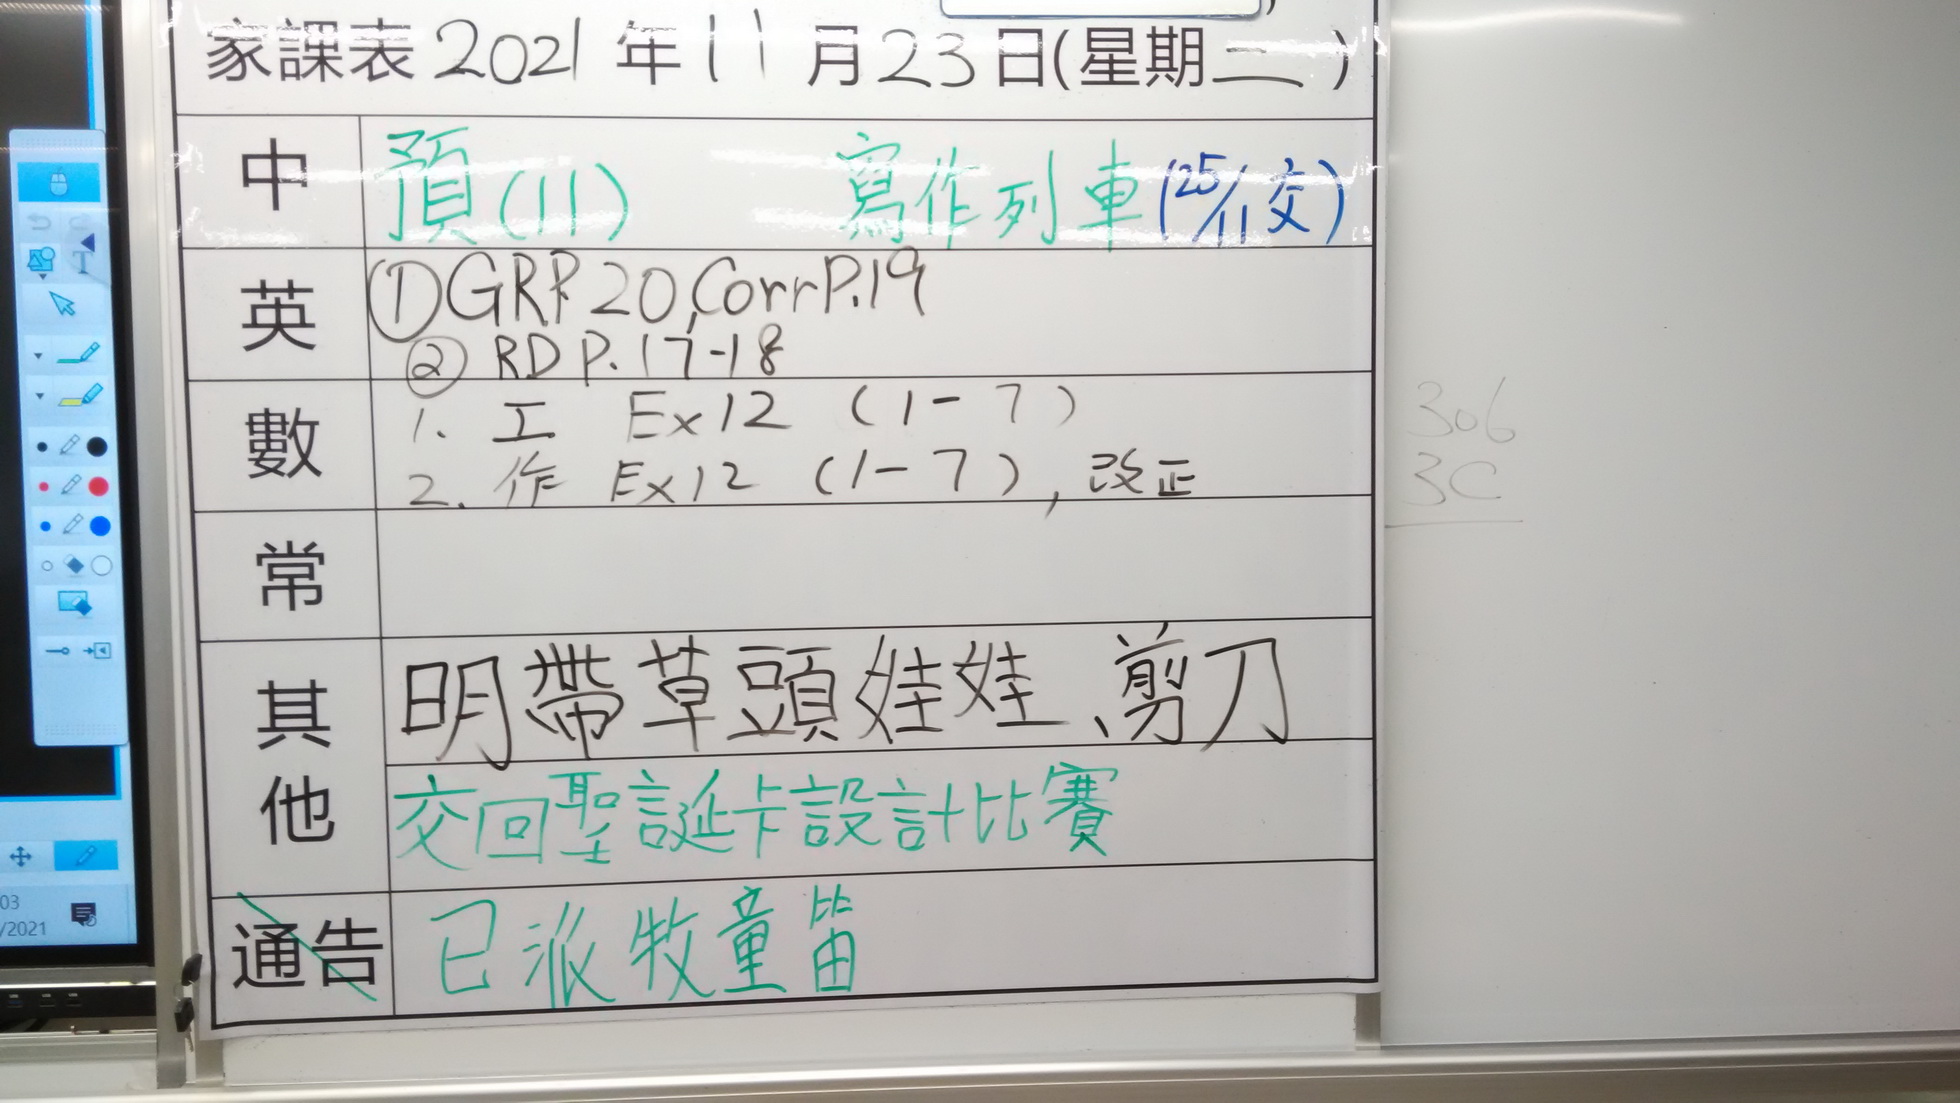 家課表2021年11月23日(星期二)
中 預(11) 寫作列車(25/11交)
英 ①GRP.20,CorrP.19
② RD P.17-18
數 1. 工 Ex12 (1-7)
2. 作 Ex12 (1-7), 改正
常
其他 明帶草頭娃娃、剪刀
交回聖誕卡設計比賽
通告 已派牧童笛
306
3C
T
03
/2021